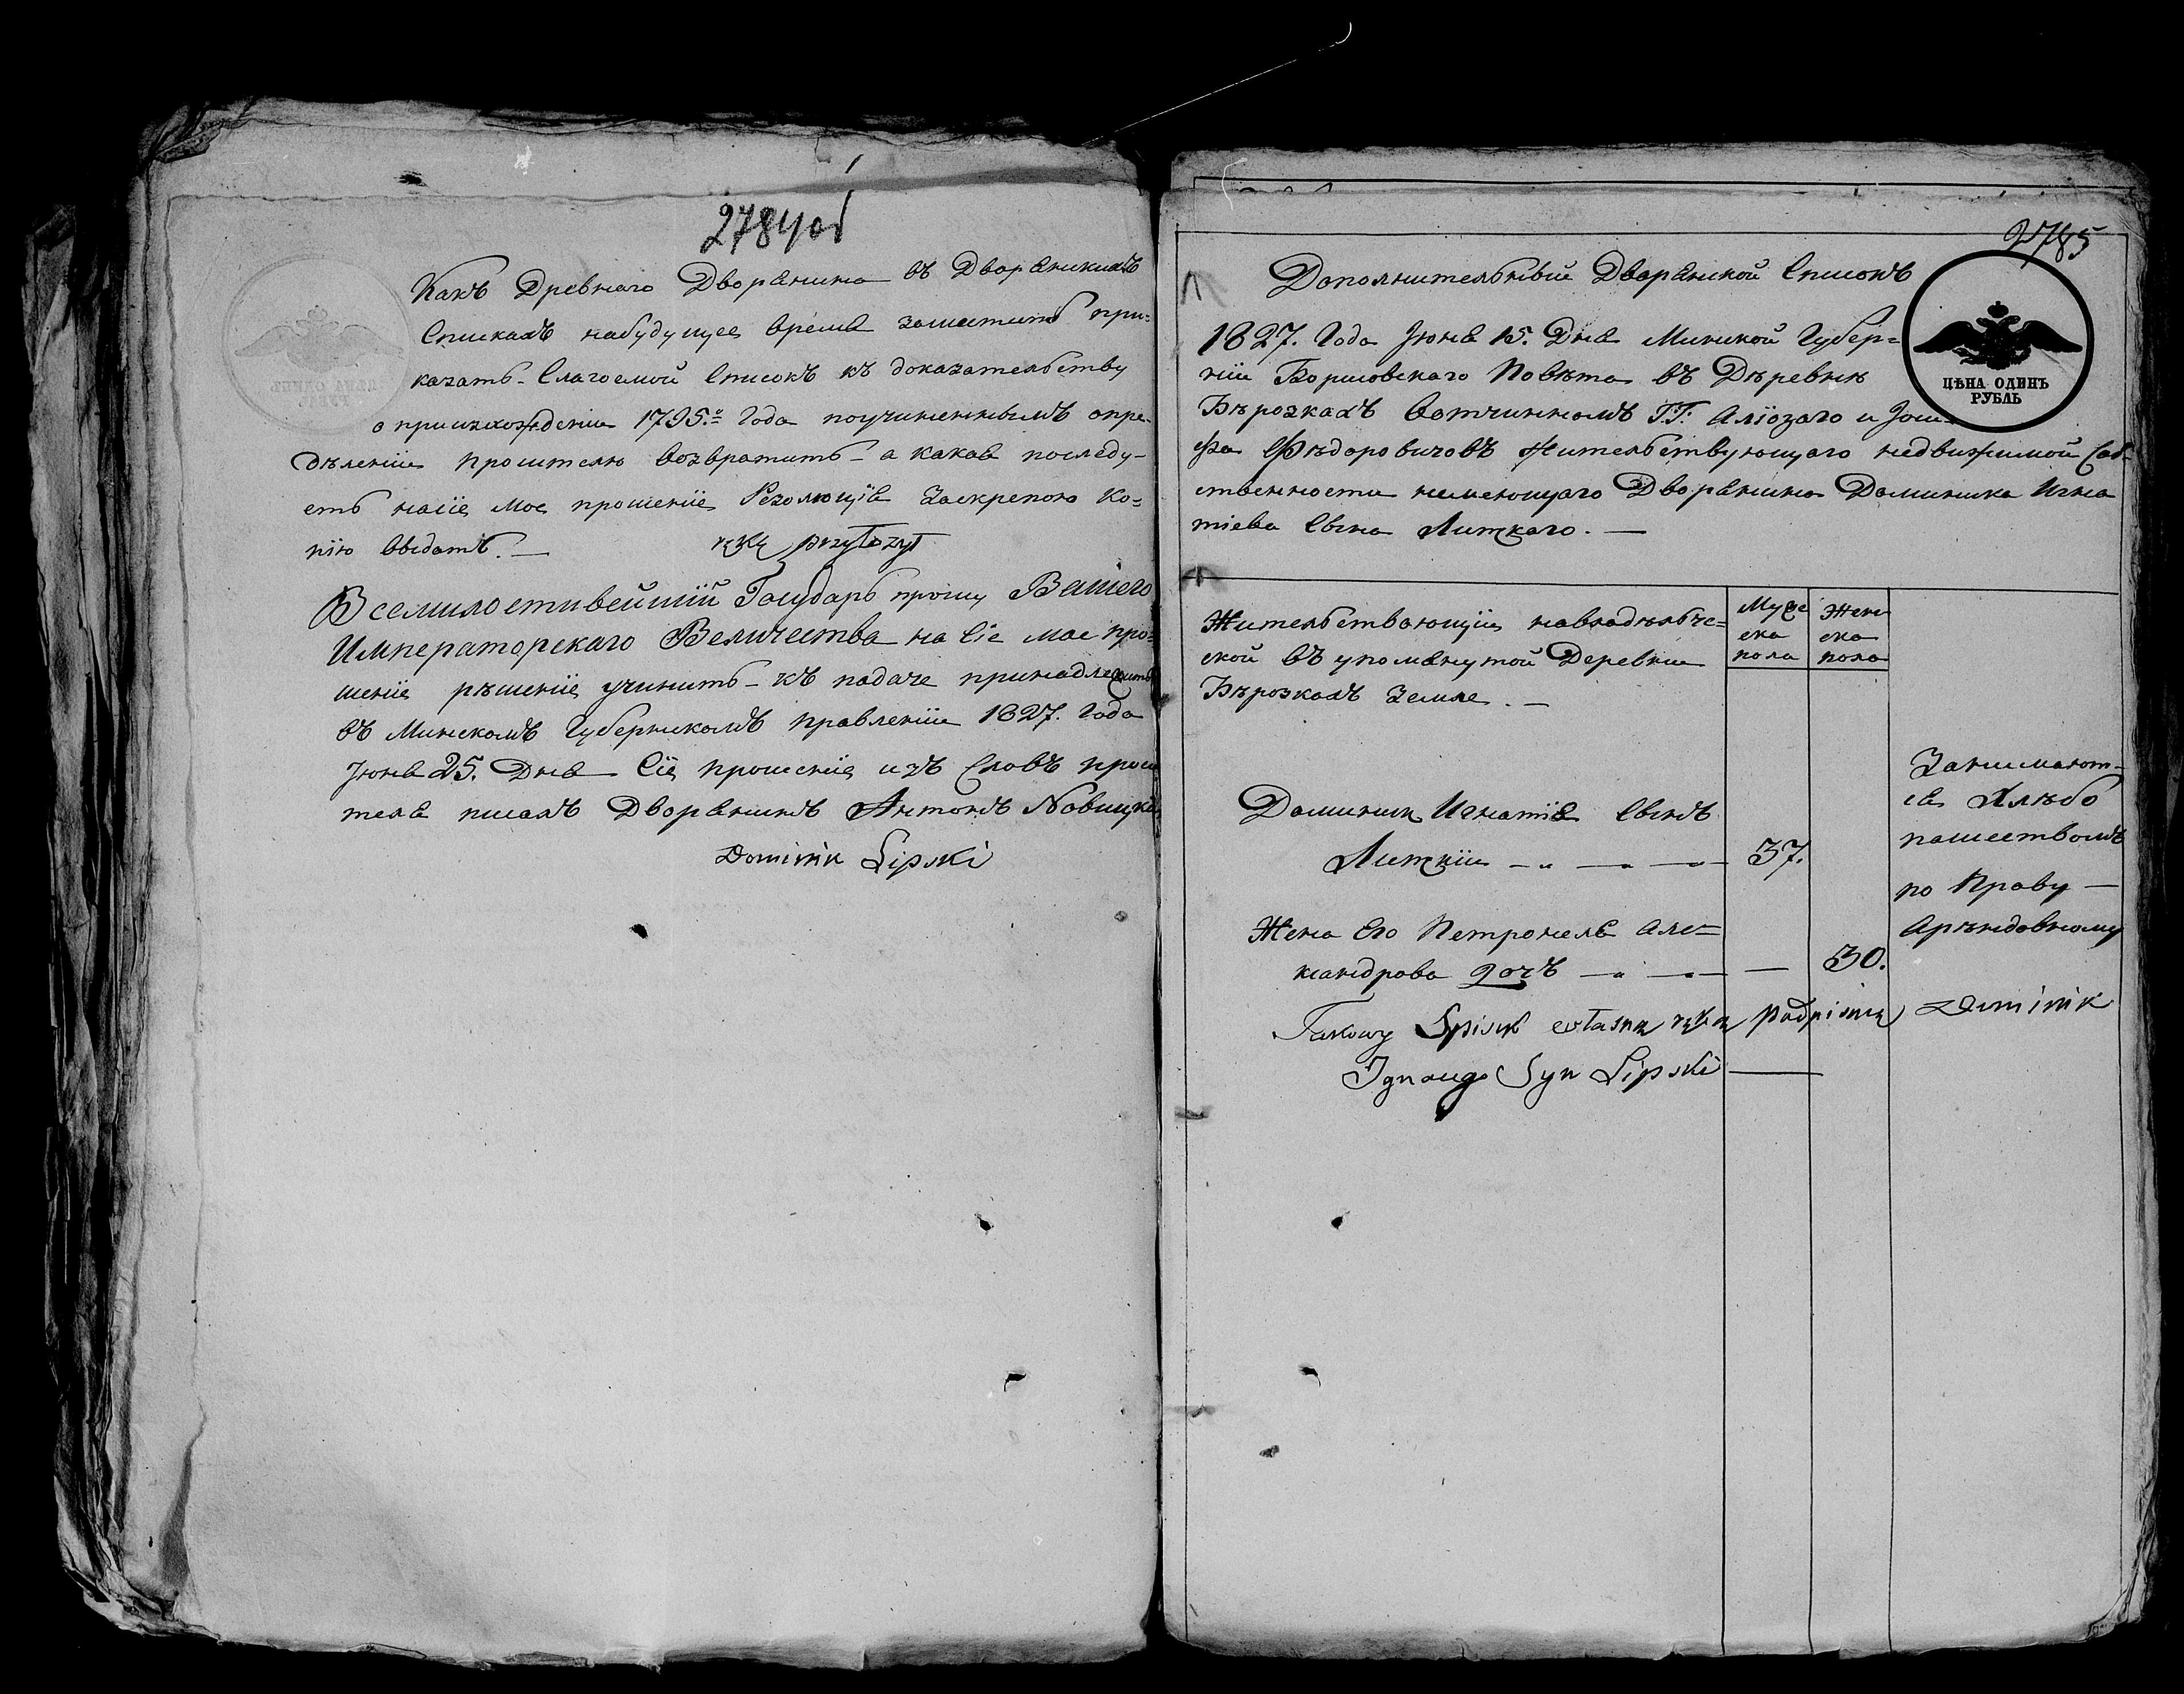 2784 об
Какъ Древняго Дворянина въ Дворянскихъ
Спискахъ набудущее время заместить при-
казать. Слагоемой Списокъ къ доказательству
о произхождении 1795.го Года поучиненнымъ опре-
дѣленіи просителю возвратить а какая последу-
етъ насіе мое прошеніе Резолюція Закрепою Ко-
пію выдать. — rękę przyłożył
Всемилостивейшій Государь прошу Вашего
Императорскаго Величества на Сіе мое про-
шеніе рѣшеніе учинить къ подаче принадлежитъ
въ Минскомъ Губернскомъ Правленіи 1827. Года
Іюня 25. Дня Сіе прошеніе изъ Словъ проси
теля писалъ Дворянинъ Антонъ Новицкій
Dominik Lipski
2785
Дополнительный Дворянской Списокъ
ЦѢНА ОДИНЪ
РУБЛЬ
1827. Года Іюня 15. Дня Минской Губер-
ніи Борисовскаго Повѣта въ Дѣревнѣ
Бѣрозкахъ Вотчинномъ ГГ. Аліозаго и Іози-
фа Фѣдоровичовъ Жительствующаго недвижимой Соб-
ственности неимеющаго Дворянина Доминика Игна
тіева Сына Липскаго. —
Жительствающіи навладѣльче-
ской въ упомянутой Деревни
Бѣрозкахъ Земле. —
Муже
ска
пола
Жен
ска
пола
Доминик Игнатія Сынъ
Липскіи 37.
Жена Его Петронеля Але-
ксандрова Дочъ — 30.
Занимают-
ся Хлѣбо
пашествомъ
по Праву —
Арѣндовному
Takowy Spisek własną ręką podpisuię Dominik
Ignacego Syn Lipski